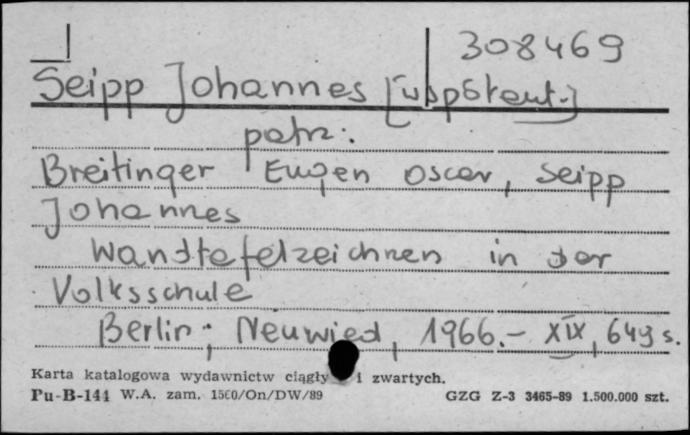 308469
Seipp Johannes [współaut.]
patrz:
Breitinger Eugen Oscar, Seipp
Johannes
Wandtafelzeichnen in der
Volksschule
Berlin; Neuwied, 1966.- XIX, 649 s.
Karta katalogowa wydawnictw ciągły i zwartych.
Pu-B-144 W.A. zam. 1560/On/DW/89 GZG Z-3 3465-89 1.500.000 szt.